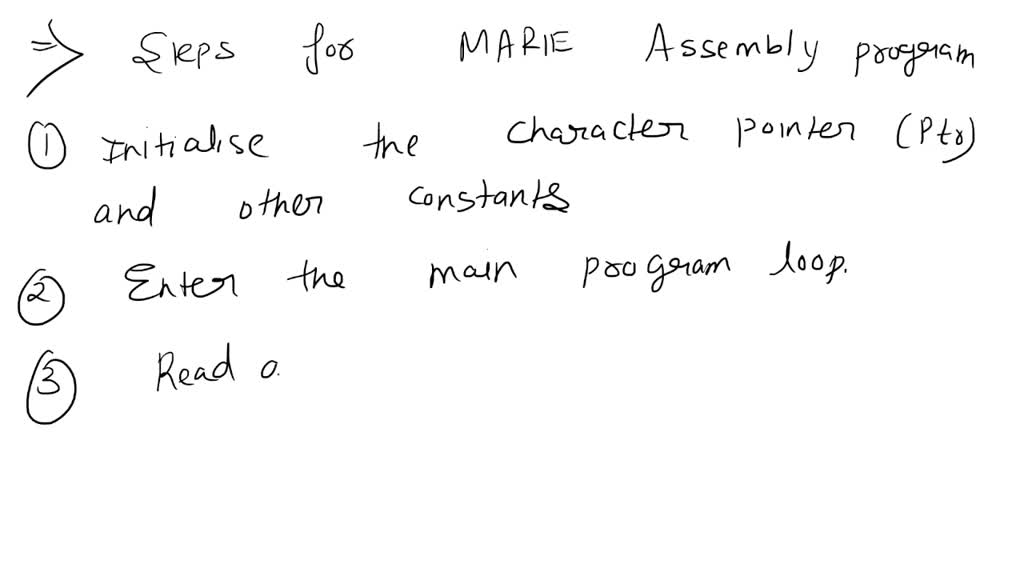 ⇒ Steps for MARIE Assembly program
① Initialise the character pointer (Ptr)
and other constants
② Enter the main program loop.
③ Read a